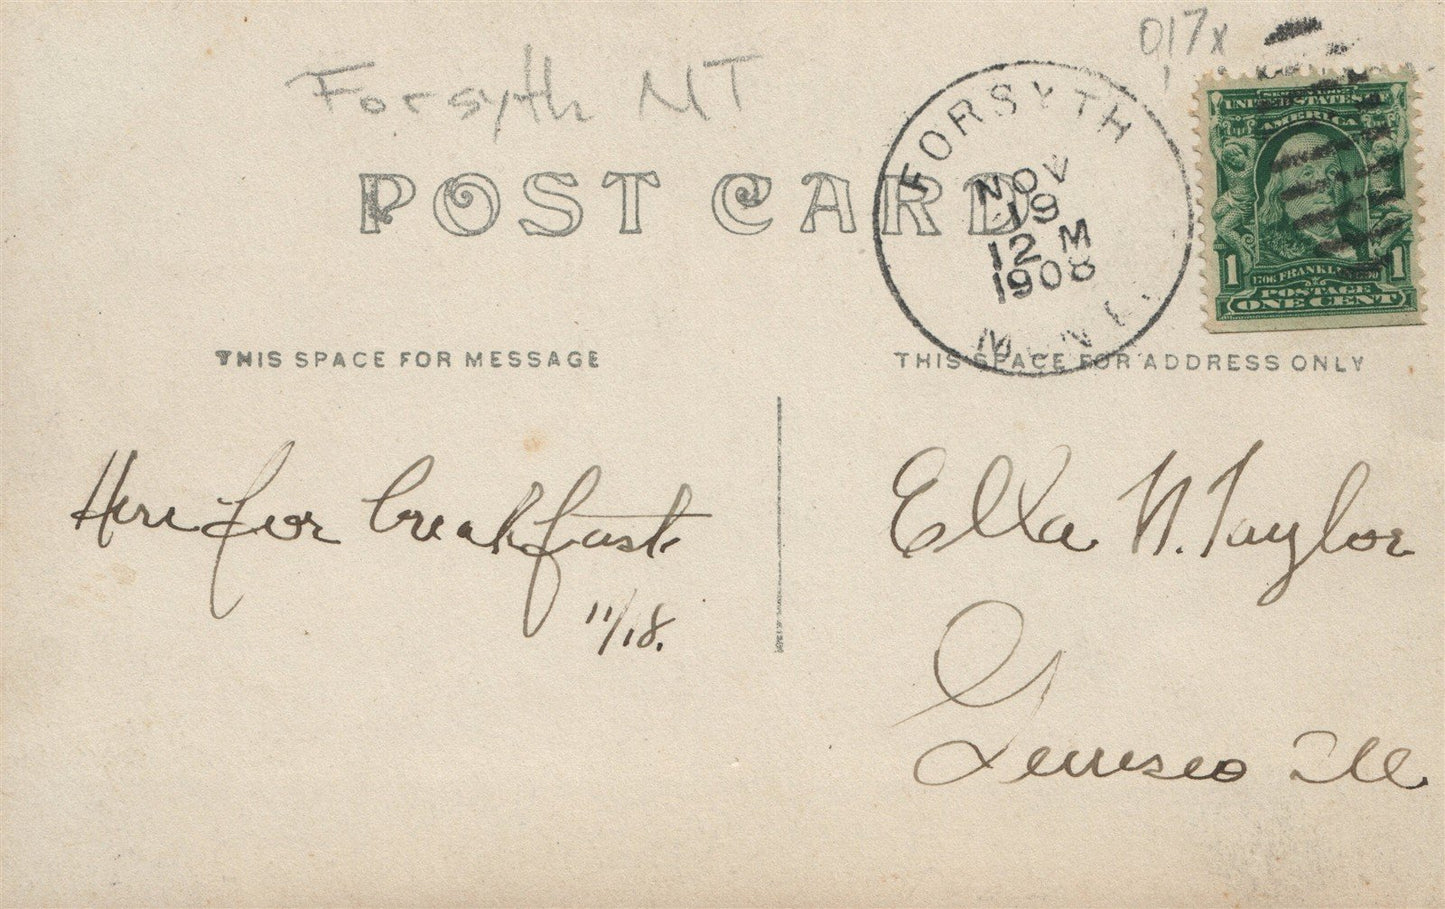 Forsyth MT
017x
POST CARD
FORSYTH
NOV
19
12 M
1908
MONT.
SERIES 1902
UNITED STATES
AMERICA
1706 FRANKLIN 1790
1 1
POSTAGE
ONE CENT
THIS SPACE FOR MESSAGE
THIS SPACE FOR ADDRESS ONLY
Here for breakfast
11/18.
Ella N. Taylor
Geneseo Ill